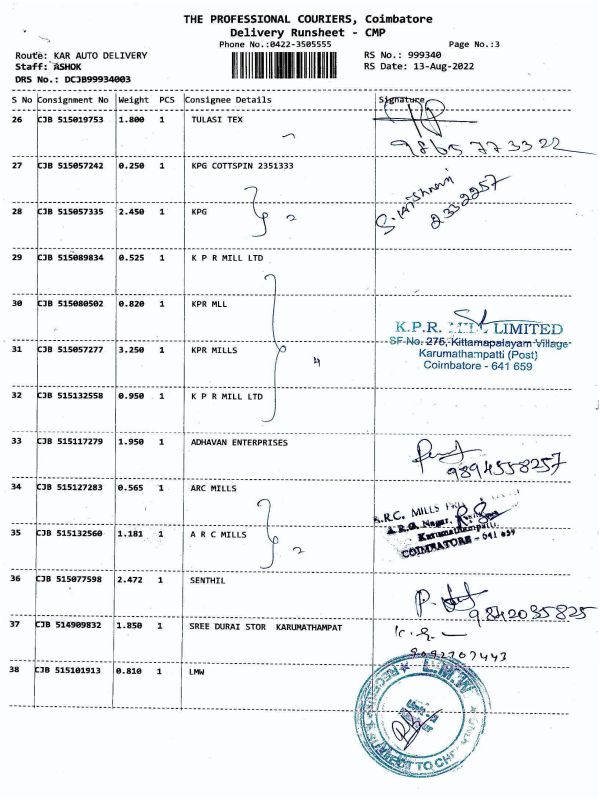 THE PROFESSIONAL COURIERS, Coimbatore
Delivery Runsheet - CMP
Phone No.:0422-3505555 Page No.:3
Route: KAR AUTO DELIVERY RS No.: 999340
Staff: ASHOK RS Date: 13-Aug-2022
DRS No.: DCJB99934003
S No Consignment No Weight PCS Consignee Details Signature
26 CJB 515019753 1.800 1 TULASI TEX
9865773322
27 CJB 515057242 0.250 1 KPG COTTSPIN 2351333
28 CJB 515057335 2.450 1 KPG 2 2332257
29 CJB 515089834 0.525 1 K P R MILL LTD
30 CJB 515080502 0.820 1 KPR MLL
K.P.R. MILL LIMITED
SF No. 276, Kittampalayam Village
31 CJB 515057277 3.250 1 KPR MILLS 4 Karumathampatti (Post)
Coimbatore - 641 659
32 CJB 515132558 0.950 1 K P R MILL LTD
33 CJB 515117279 1.950 1 ADHAVAN ENTERPRISES
9894558257
34 CJB 515127283 0.565 1 ARC MILLS
A.R.C. MILLS
A.R.C. Nagar,
35 CJB 515132560 1.181 1 A R C MILLS 2 Karumathampatti
COIMBATORE - 641 659
36 CJB 515077598 2.472 1 SENTHIL
9842035825
37 CJB 514909832 1.850 1 SREE DURAI STOR KARUMATHAMPAT
9092707443
38 CJB 515101913 0.810 1 LMW
L.M.W